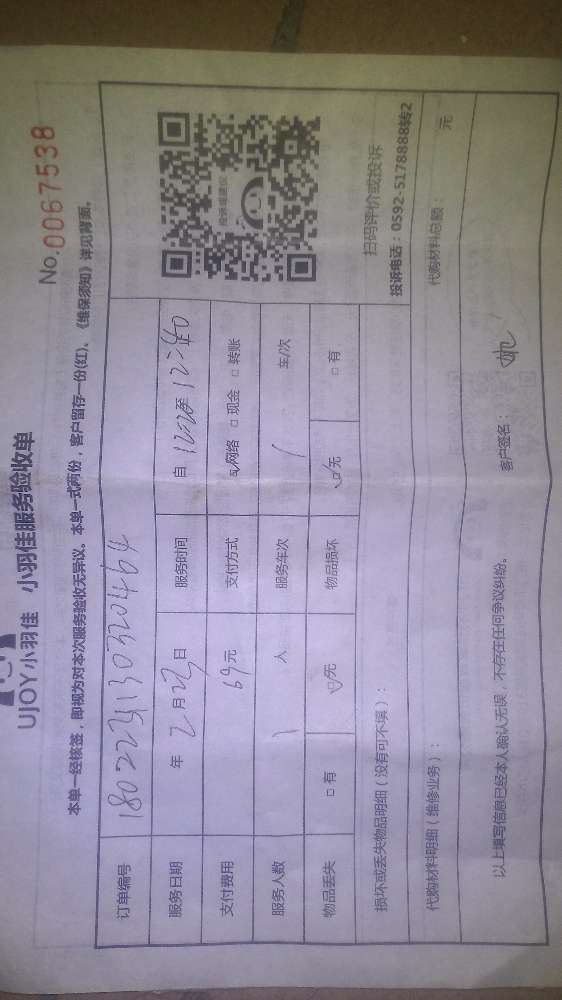 UJOY小羽佳 小羽佳服务验收单
No.0067538
本单一经核签，即视为对本次服务验收无异议。本单一式两份，客户留存一份(红)、《维保须知》详见背面。
订单编号 180223130320464
服务日期 年 2 月 23 日 服务时间 自 12:20 至 12:40
支付费用 69 元 支付方式 ☑网络 □现金 □转账
服务人数 1 人 服务车次 1 车/次
物品丢失 □有 ☑无 物品损坏 ☑无 □有
扫码评价或投诉
投诉电话：0592-5178888转2
损坏或丢失物品明细（没有可不填）：
代购材料明细（维修业务）： 代购材料总额： 元
以上填写信息已经本人确认无误，不存在任何争议纠纷。 客户签名：